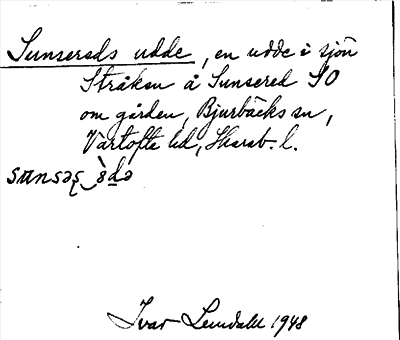 Sunsereds udde, en udde i sjön
Stråken å Sunsered SO
om gården, Bjurbäcks sn,
Vartofta hd, Skarab. l.
Ivar Lundahl 1948